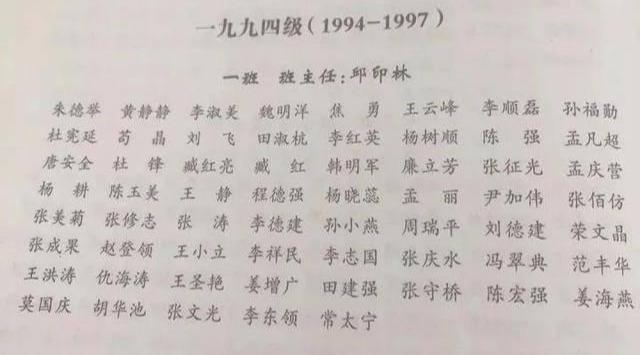 一九九四级(1994-1997)
一班 班主任:邱印林
朱德举 黄静静 李淑美 魏明洋 焦 勇 王云峰 李顺磊 孙福勋
杜宪延 苟 晶 刘 飞 田淑杭 李红英 杨树顺 陈 强 孟凡超
唐安全 杜 锋 臧红亮 臧 红 韩明军 廉立芳 张征光 孟庆营
杨 耕 陈玉美 王 静 程德强 杨晓蕊 孟 丽 尹加伟 张佰仿
张美菊 张修志 张 涛 李德建 孙小燕 周瑞平 刘德建 荣文晶
张成果 赵登领 王小立 李祥民 李志国 张庆水 冯翠典 范丰华
王洪涛 仇海涛 王圣艳 姜增广 田建强 张守桥 陈宏强 姜海燕
莫国庆 胡华池 张文光 李东领 常太宁